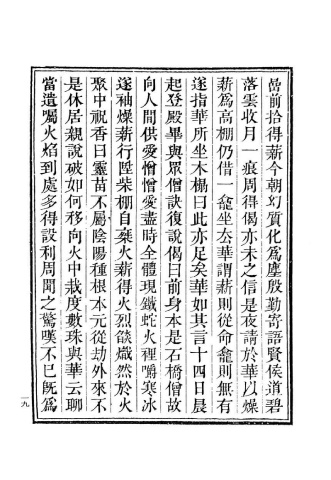 嵒前拾得薪今朝幻質化為塵殷勤寄語賢侯道碧
落雲收月一痕周得偈亦未之信是夜請於華以燥
薪為高棚仍借一龕坐去華謂薪則從命龕則無有
遂指華所坐木榻曰此亦足矣華如其言十四日晨
起登殿畢與眾僧訣復說偈曰前身本是石橋僧故
向人間供愛憎憎愛盡時全體現鐵蛇火裡嚼寒冰
遂袖燥薪行陞柴棚自爇火薪得火烈燄熾然於火
聚中祝香曰靈苗不屬陰陽種根本元從劫外來不
是休居親說破如何移向火中栽度數珠與華云聊
當遺囑火焰到處多得設利周聞之驚嘆不已既為
一九